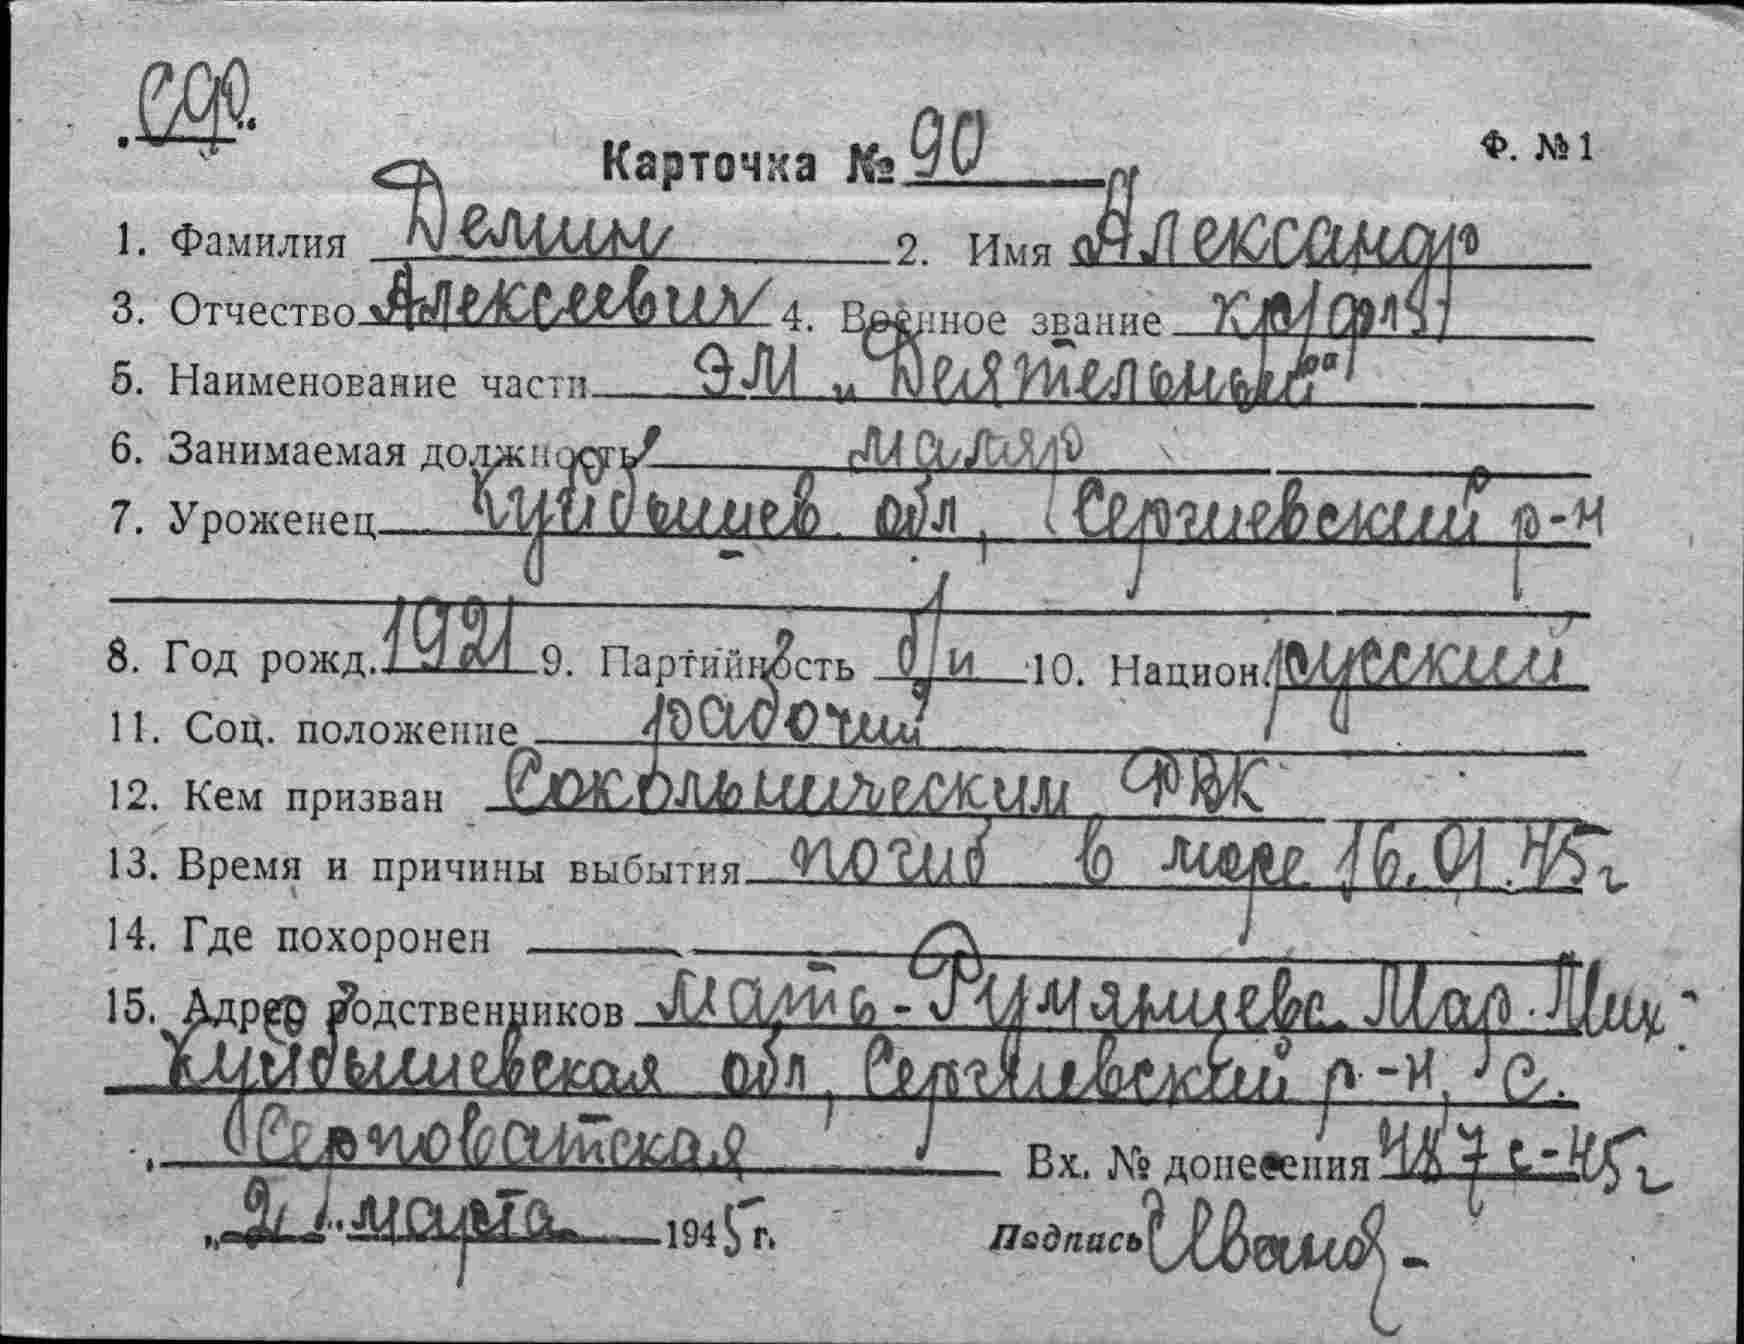 Сф.
Карточка № 90 Ф. № 1
1. Фамилия Демин 2. Имя Александр
3. Отчество Алексеевич 4. Военное звание кр/фл
5. Наименование части ЭМ „Деятельный"
6. Занимаемая должность маляр
7. Уроженец Куйбышев обл, Сергиевский р-н
8. Год рожд. 1921 9. Партийность б/п 10. Национ. русский
11. Соц. положение рабочий
12. Кем призван Сокольническим РВК
13. Время и причины выбытия погиб в море 16.01.45г
14. Где похоронен
15. Адрес родственников мать - Румянцева Мар. Мих -
Куйбышевская обл, Сергиевский р-н, с.
Серноватская
Вх. № донесения 487 с-45г
„21" марта 1945 г. Подпись Иванов